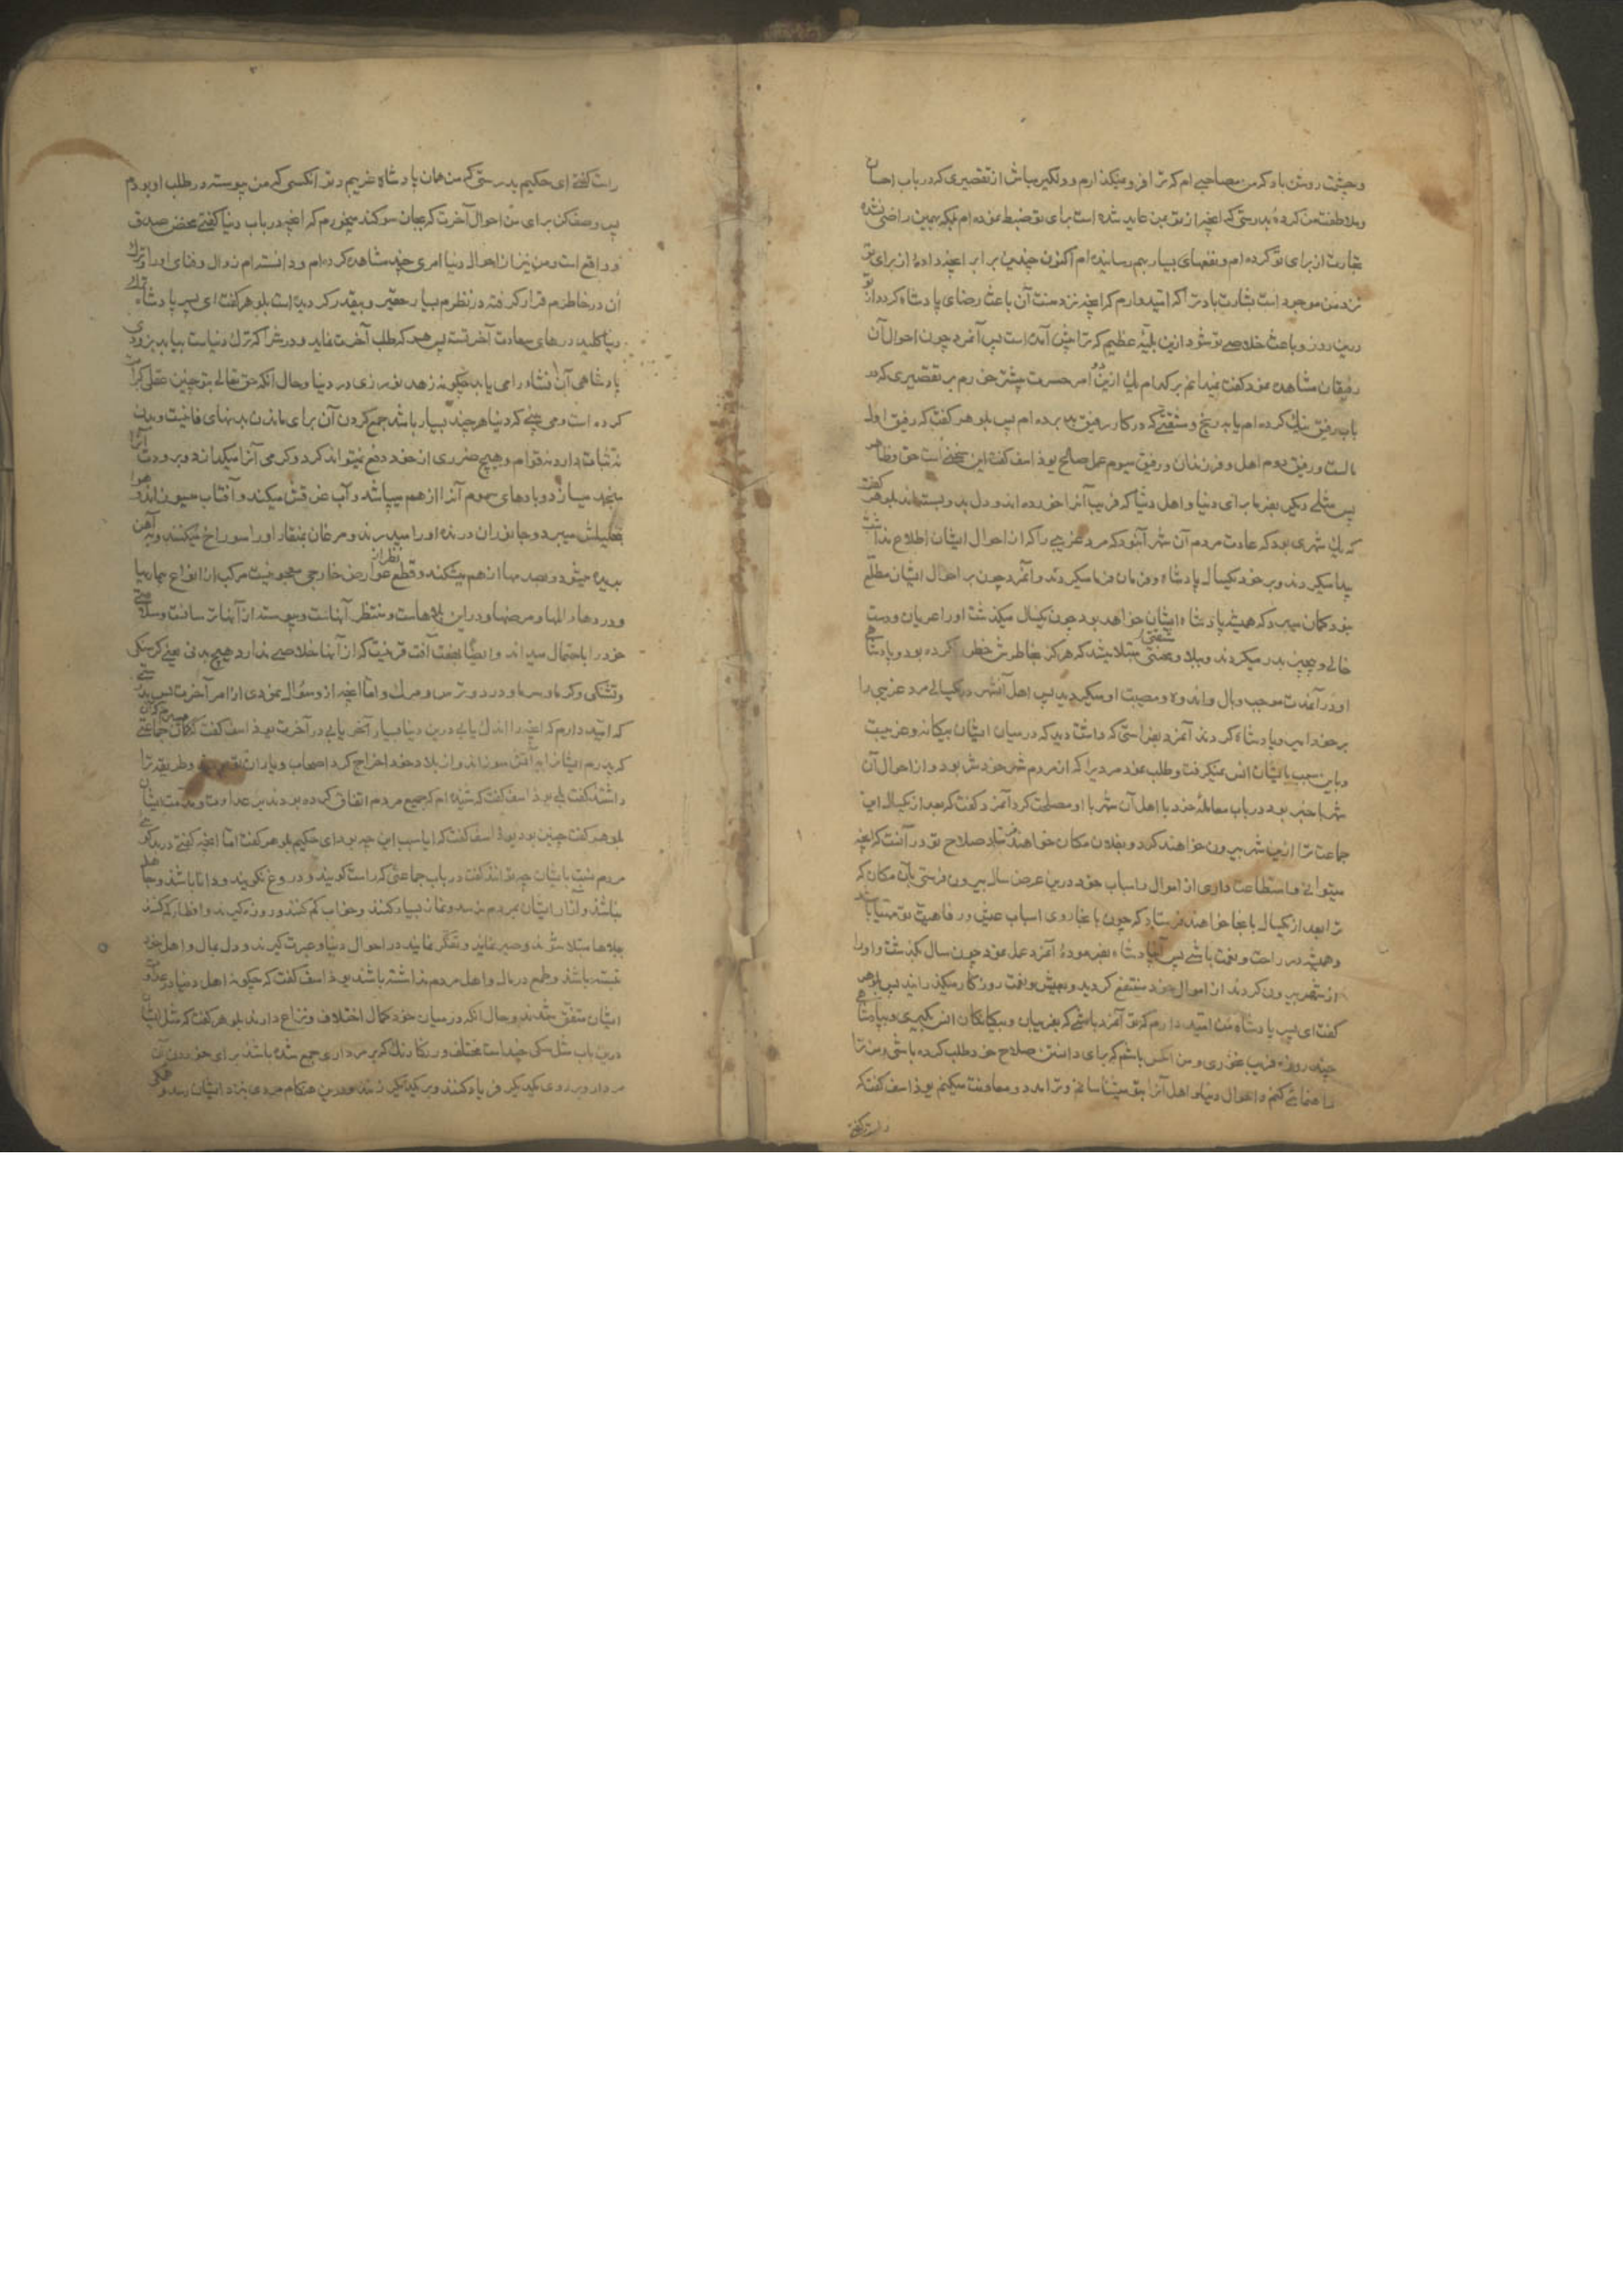 و چشمت روشن باد که من مصاحبی ام که ترا فرو نمیگذارم و دلگیر مباش از تقصیری که در باب احسان
و ملاطفت من کرده بدرستی که انچه از تو بمن عاید شده است برای تو ضبط نموده ام بلکه بهمین راضی نشده
تجارت از برای تو کرده ام و نفعهای بسیار بهم رسانیده ام اکنون چندین برابر انچه داده از برای تو
نزد من موجود است بشارت باد ترا که امیدوارم که انچه نزد منست آن باعث رضای پادشاه گردد از تو
درین روز و باعث خلاصی تو شود ازین بلیه عظیم که ترا پیش آمده است پس آنمرد چون احوال آن
رفیقان مشاهده نمود گفت نمیدانم بر کدام یک ازین دو امر حسرت بیشتر خورم بر تقصیری که در
باب رفیق نیک کرده ام یا بر رنج و مشقتی که در کار رفیق بد برده ام پس بلوهر گفت که رفیق اول
مالست و رفیق دوم اهل و فرزندان و رفیق سیوم عمل صالح یوذاسف گفت این سخنی است حق و ظاهر
پس مثلی دیگر بفرما برای دنیا و اهل دنیا که فریب آنرا خورده اند و دل بدو بسته اند بلوهر گفت
که یک شهری بود که عادت مردم آن شهر آن بود که مرد غریبی را که از احوال ایشان اطلاع نداشت
پیدا میکردند و بر خود یکسال پادشاه و فرمان فرما میکردند و آنمرد چون بر احوال ایشان مطلع
نبود گمان میبرد که همیشه پادشاه ایشان خواهد بود چون یکسال میگذشت او را عریان و دست
خالی و بی چیز بدر میکردند و ببلا و محنتی مشقتی مبتلا میشد که هرگز بخاطرش خطور نکرده بود و پادشاهی
او در آنمدت موجب وبال و اندوه و مصیبت او میگردید پس اهل آنشهر در یکسالی مرد غریبی را
بر خود امیر و پادشاه کردند آنمرد بفراستی که داشت دید که در میان ایشان بیگانه و غریبست
و باین سبب با ایشان انس نمیگرفت و طلب نمود مردیرا که از مردم شهر خودش بود و از احوال آن
شهر با خبر بود در باب معامله خود با اهل آن شهر با او مصلحت کرد آنمرد گفت که بعد از یکسال این
جماعت ترا ازین شهر بیرون خواهند کرد و بفلان مکان خواهند فرستاد صلاح تو در آنست که انچه
میتوانی و استطاعت داری از اموال و اسباب خود درین عرض سال بیرون فرستی بآن مکان که
ترا بعد از یکسال بانجا خواهند فرستاد که چون بانجا روی اسباب عیش و رفاهیت تو مهیا باشد
و همیشه در راحت و نعمت باشی پس آنپادشاه بفرموده آنمرد عمل نمود چون سال بگذشت و او را
از شهر بیرون کردند از اموال خود منتفع گردید و بعیش و نعمت روزگار میگذرانید پس بلوهر
گفت ای پسر پادشاه من امید دارم که تو آنمرد باشی که بغریبان و بیگانگان انس نگیری و بپادشاهی
چند روزه فریب نخوری و من آنکس باشم که برای دانستن صلاح خود طلب کرده باشی و من ترا
راهنمائی کنم و احوال دنیا و اهل آنرا بتو میشناسانم و ترا مدد و معاونت میکنم یوذاسف گفت که
راست گفتی
راست گفتی ای حکیم بدرستی که من همان پادشاه غریبم و تو آنکسی که من پیوسته در طلب او بودم
پس وصف کن برای من احوال آخرت که بجان سوگند میخورم که انچه در باب دنیا گفتی محض صدق
و واقع است و من نیز از احوال دنیا امری چند مشاهده کرده ام و دانسته ام زوال و فنای او را و ترک
آن در خاطرم قرار گرفته در نظرم بسیار حقیر و بیقدر گردیده است بلوهر گفت ای پسر پادشاه ترک
دنیا کلید درهای سعادت آخرتست پس هر که طلب آخرت نماید و درش را که ترک دنیاست بیابد بزودی
پادشاهی آن نشاه را می یابد چگونه زهد نورزی در دنیا و حال انکه حق تعالی بتو چنین عقلی کرامت
کرده است و می بینی که دنیا هر چند بسیار باشد جمع کردن آن برای ماندن بدنهای فانیست و بدن
نه ثبات دارد نه قوام و هیچ ضرری از خود دفع نمیتواند کرد و گرمی آنرا میگدازد و برودت آنرا
منجمد میسازد و بادهای سموم آنرا از هم میپاشد و آب غرقش میکند و آفتاب میسوزاند و هوا
بتحلیلش میبرد و جانوران درنده او را میدرند و مرغان بمنقار او را سوراخ میکنند و بآهن
بریده میشود و بصدمها از هم میشکند و قطع نظر از عوارض خارجی معجونیست مرکب از انواع بیماریها
و دردها و المها و مرضها و در این بلاهاست و منتظر آنهاست و پیوسته از آنها ترسانست و سلامتی
خود را باحتمال میداند و ایضا بهفت آفت قرینست که از آنها خلاصی ندارد هیچ بدنی یعنی گرسنگی
و تشنگی و گرما و سرما و درد و ترس و مرگ و اما انچه از و سؤال نمودی از امر آخرت پس بدرستی
که امید دارم که انچه را اندک یابی درین دنیا بسیار آنرا یابی در آخرت یوذاسف گفت گمان میبرم جماعتی
که پدرم ایشانرا بآتش سوزاند و از بلاد خود اخراج کرد اصحاب و یاران تو بودند و طریقه ترا
داشتند گفت بلی یوذاسف گفت که شنیده ام که جمیع مردم اتفاق کرده بودند بر عداوت و مذمت ایشان
بلوهر گفت چنین بود یوذاسف گفت که ایا سبب این چه بود ای حکیم بلوهر گفت اما انچه گفتی در بدگوئی
مردم نسبت بایشان چه تواند گفت در باب جماعتی که راست گویند و دروغ نگویند و دانا باشند و جاهل
نباشند و آزار ایشان بمردم نرسد و نماز بسیار کنند و خواب کم کنند و روزه گیرند و افطار کم کنند
ببلاها مبتلا شوند و صبر نمایند و تفکر نمایند در احوال دنیا و عبرت گیرند و دل بمال و اهل خود
نبسته باشند و طمع در مال و اهل مردم نداشته باشند یوذاسف گفت که چگونه اهل دنیا در عداوت
ایشان متفق شدند و حال انکه در میان خود کمال اختلاف و نزاع دارند بلوهر گفت که مثل ایشان
درین باب مثل سگی چند است مختلف و رنگارنگ که بر مرداری جمع شده باشند برای خوردن آن
مردار و بر روی یکدیگر فریاد کنند و بر یکدیگر زنند و درین هنگام مردی نزد ایشان رسد و همگی